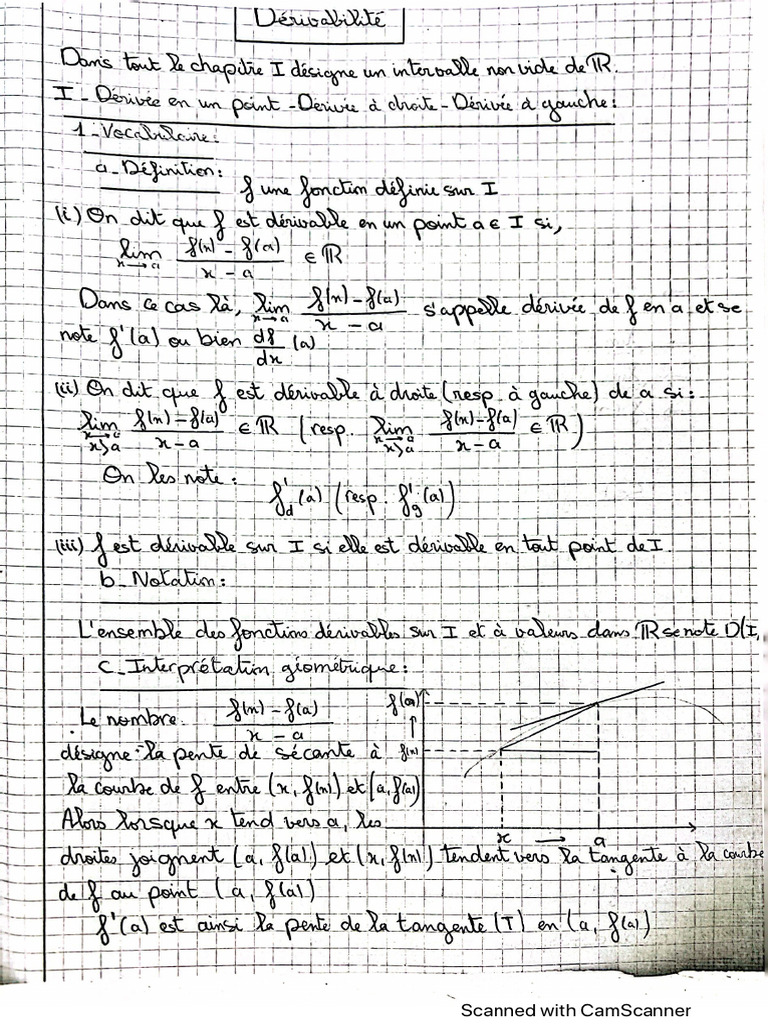 Dérivabilité
Dans tout le chapitre I désigne un intervalle non vide de ℝ.
I - Dérivée en un point - Dérivée à droite - Dérivée à gauche :
1 - Vocabulaire :
a - Définition :
f une fonction définie sur I
(i) On dit que f est dérivable en un point a ∈ I si,
lim x→a (f(x) - f(a))/(x - a) ∈ ℝ
Dans ce cas là, lim x→a (f(x) - f(a))/(x - a) s'appelle dérivée de f en a et se
note f'(a) ou bien df/dx (a)
(ii) On dit que f est dérivable à droite (resp. à gauche) de a si :
lim x→a x>a (f(x) - f(a))/(x - a) ∈ ℝ (resp. lim x→a x>a (f(x) - f(a))/(x - a) ∈ ℝ)
On les note :
f'd(a) (resp. f'g(a))
(iii) f est dérivable sur I si elle est dérivable en tout point de I.
b - Notation :
L'ensemble des fonctions dérivables sur I et à valeurs dans ℝ se note D(I,
c - Interprétation géométrique :
Le nombre (f(x) - f(a))/(x - a)
désigne la pente de sécante à
la courbe de f entre (x, f(x)) et (a, f(a))
Alors lorsque x tend vers a, les
f(a)
f(x)
x → a
droites joignent (a, f(a)) et (x, f(x)) tendent vers la tangente à la courbe
de f au point (a, f(a))
f'(a) est ainsi la pente de la tangente (T) en (a, f(a))
Scanned with CamScanner